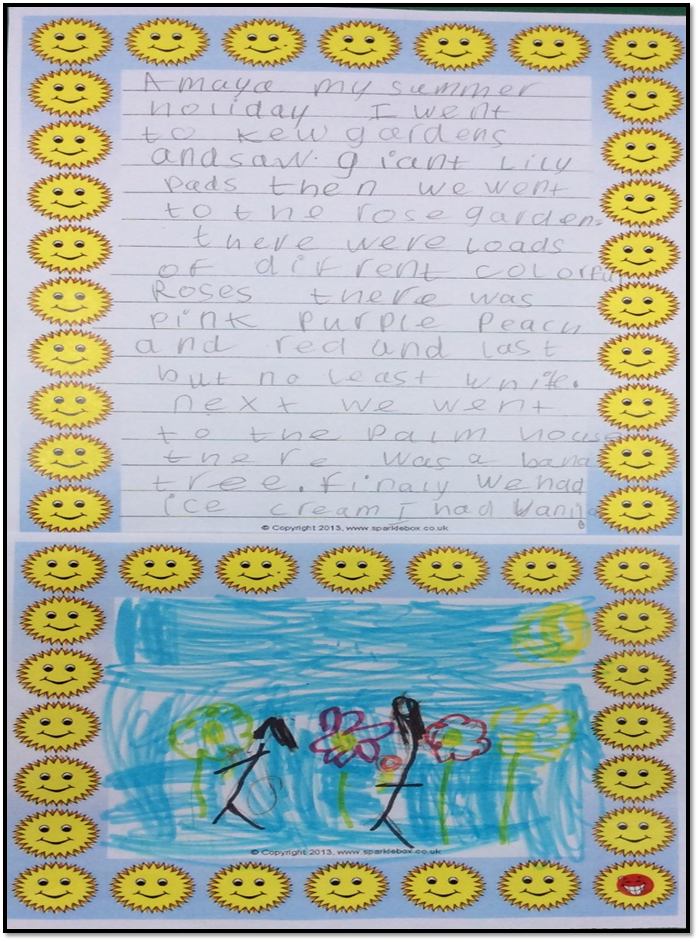 Amaya my summer
holiday I went
to kew gardens
and saw. giant Lily
pads then we went
to the rose garden.
there were Loads
of difrent colorful
Roses there was
pink purple peach
and red and last
but no least white.
next we went
to the palm house
there was a bana
tree. finaly we had
ice cream I had Vanila
© Copyright 2013, www.sparklebox.co.uk
© Copyright 2013, www.sparklebox.co.uk